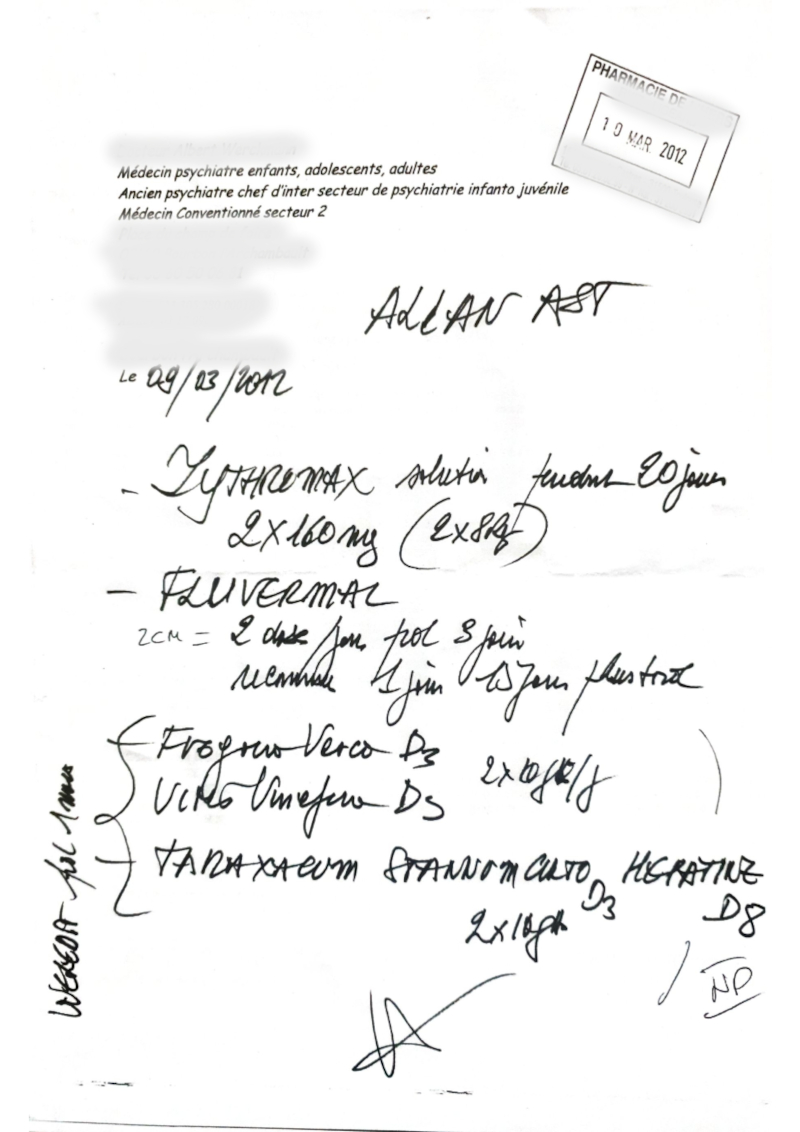 PHARMACIE DE
10 MAR. 2012
Médecin psychiatre enfants, adolescents, adultes
Ancien psychiatre chef d'inter secteur de psychiatrie infanto juvénile
Médecin Conventionné secteur 2
ALLAN AST
Le 09/03/2012
- ZYTHROMAX solution pendant 20 jours
2X160mg (2x8kg)
- FLUVERMAL
2CM = 2 dose / jour 3 jours
1 jour 15 jours plus tard
D3
2x10
Vitis Vinifera D3
- TARAXACUM STANNO D3 HEPATINE
D8
2x10
WELEDA 1 mois
NP